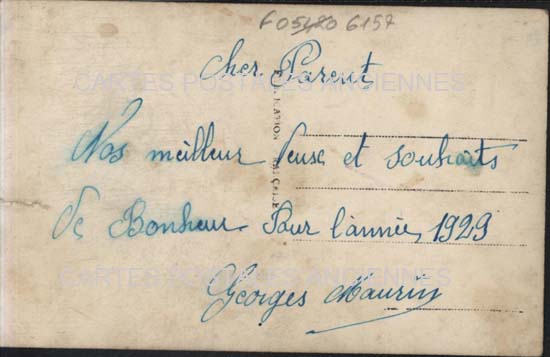 F 05480 6157
Cher Parent
CARTES POSTALES ANCIENNES
Nos meilleur Veuse et souhaits
de Bonheur Pour l'année, 1929
CARTES POSTALES ANCIENNES
Georges Maurin